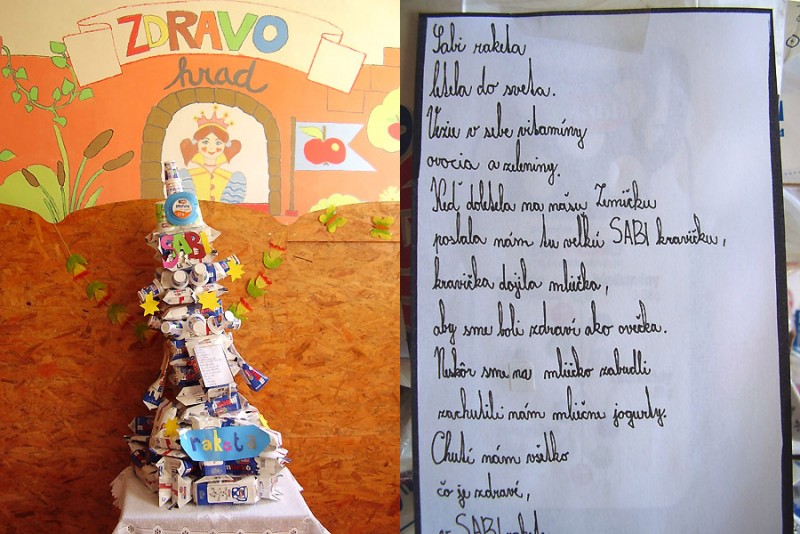 ZDRAVO
hrad
SABI
raketa
Sabi raketa
letela do sveta.
Vezie v sebe vitamíny
ovocia a zeleniny.
Keď doletela na našu Zemičku
poslala nám tu veľkú SABI kravičku,
kravička dojila mliečka,
aby sme boli zdraví ako ovečka.
Neskôr sme na mliečko zabudli
zachutili nám mliečne jogurty.
Chutí nám všetko
čo je zdravé,
SABI